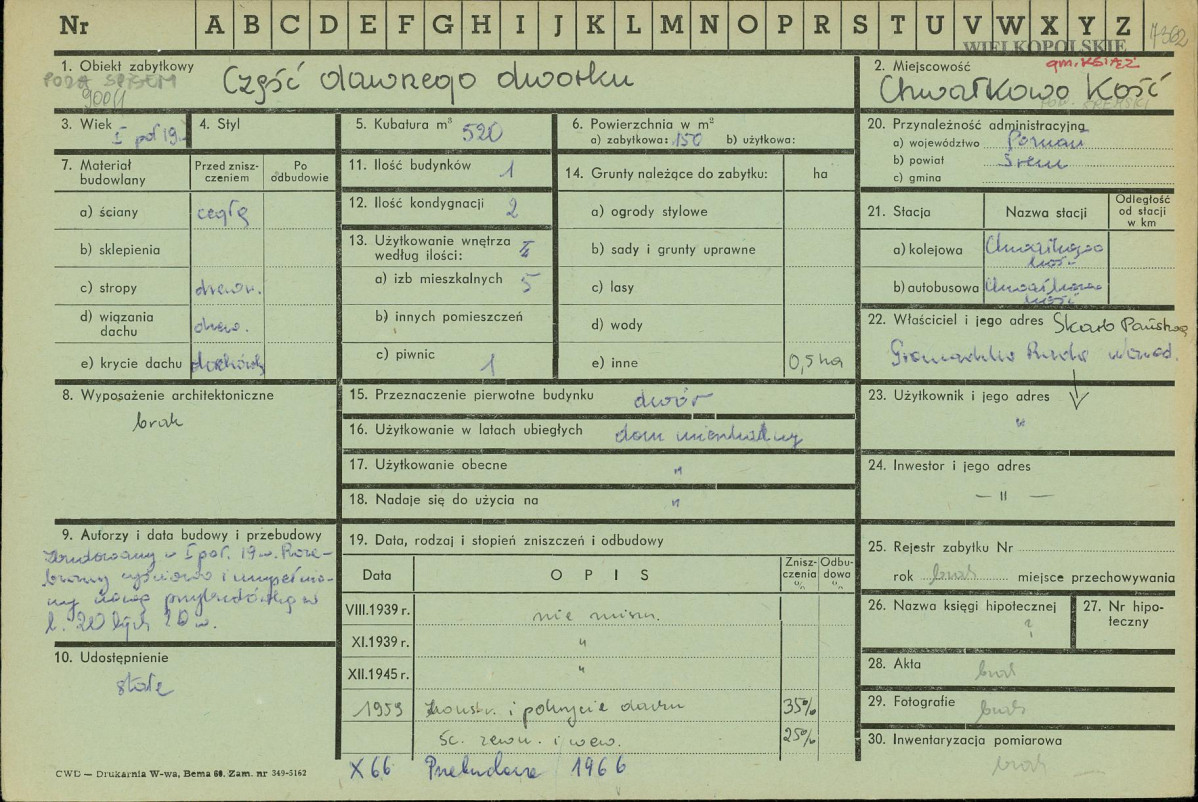 Nr A B C D E F G H I J K L M N O P R S T U V W X Y Z 7362
WIELKOPOLSKIE
1. Obiekt zabytkowy
Część dawnego dworku
POZA SPISEM
2. Miejscowość
gm. KSIĄŻ
Chwałkowo Kość
3. Wiek
I poł 19.
4. Styl
5. Kubatura m³ 520
6. Powierzchnia w m²
a) zabytkowa: 150 b) użytkowa:
7. Materiał budowlany
Przed zniszczeniem
Po odbudowie
a) ściany cegłę
b) sklepienia
c) stropy drewn.
d) wiązania dachu drew.
e) krycie dachu dachówk
8. Wyposażenie architektoniczne
brak
9. Autorzy i data budowy i przebudowy
Zbudowany w I poł. 19 w. Roze-
brany częściowo i uzupełnio-
ny nową przybudówką w
l. 20 tych 20 w.
10. Udostępnienie
stałe
11. Ilość budynków 1
12. Ilość kondygnacji 2
13. Użytkowanie wnętrza według ilości:
a) izb mieszkalnych 5
b) innych pomieszczeń
c) piwnic 1
14. Grunty należące do zabytku: ha
a) ogrody stylowe
b) sady i grunty uprawne
c) lasy
d) wody
e) inne 0,5 ha
15. Przeznaczenie pierwotne budynku dwór
16. Użytkowanie w latach ubiegłych dom mieszkalny
17. Użytkowanie obecne "
18. Nadaje się do użycia na "
19. Data, rodzaj i stopień zniszczeń i odbudowy
Data
OPIS
Zniszczenia %
Odbudowa %
VIII.1939 r. nie niszcz.
XI.1939 r. "
XII.1945 r. "
1959 konstr. i pokrycie dachu 35%
Śc. zewn. i wew. 25%
X 66 Przebudowa 1966
20. Przynależność administracyjna
a) województwo Poznań
b) powiat Śrem
c) gmina
21. Stacja
Nazwa stacji
Odległość od stacji w km
a) kolejowa Chwałkowo Kość
b) autobusowa Chwałkowo Kość
22. Właściciel i jego adres Skarb Państwa
Gromadzka Rada
23. Użytkownik i jego adres
"
24. Inwestor i jego adres
— II —
25. Rejestr zabytku Nr
rok brak miejsce przechowywania
26. Nazwa księgi hipotecznej
?
27. Nr hipoteczny
28. Akta brak
29. Fotografie brak
30. Inwentaryzacja pomiarowa
brak
CWD — Drukarnia W-wa, Bema 60. Zam. nr 349-5162